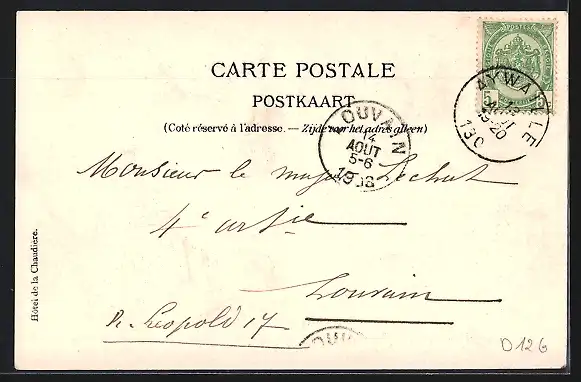 CARTE POSTALE
POSTKAART
(Coté réservé à l'adresse. — Zijde voor het adres alleen)
5 5
AYWAILLE
AOUT
19-20
130
LOUVAIN
14
AOUT
5-6
Monsieur le major Lechat
4e artie
Louvain
R. Léopold 17
Hôtel de la Chaudière.
OUV
D126